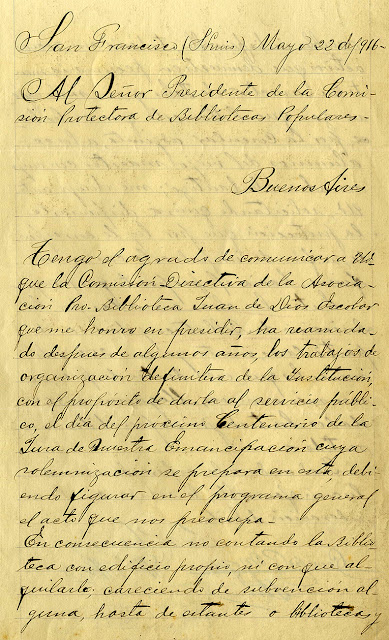 San Francisco (S. Luis) Mayo 22 de 1916-
Al Señor Presidente de la Comi-
sión Protectora de Bibliotecas Populares-
Buenos Aires
Tengo el agrado de comunicar a Ud.
que la Comisión Directiva de la Asocia-
ción Pro. Biblioteca Juan de Dios Escobar
que me honro en presidir, ha reanuda-
do despues de algunos años, los trabajos de
organización definitiva de la Institución,
con el propósito de darla al servicio públi-
co, el dia del procsimo Centenario de la
Jura de Nuestra Emancipación cuya
solemnización se prepara en esta, debi-
endo figurar en el programa general
el acto que nos preocupa-
En consecuencia no contando la Biblio-
teca con edificio propio, ni con que al-
quilarlo; careciendo de subvencion al-
guna, hasta de estantes o biblioteca y